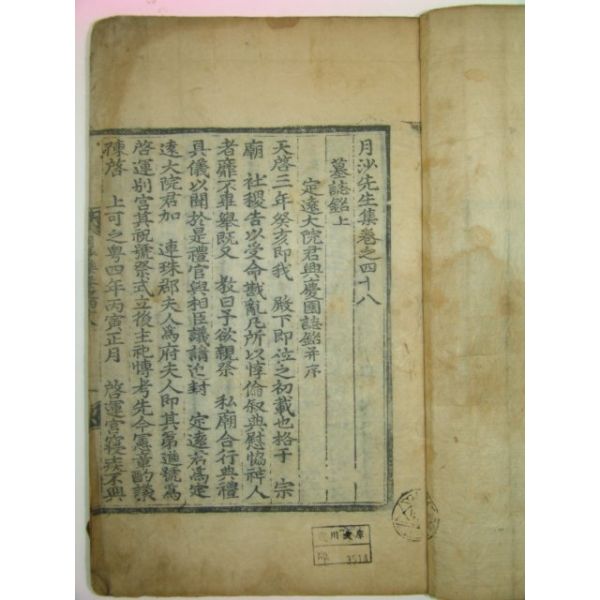 月沙先生集卷之四十八
墓誌銘上
定遠大院君興慶園誌銘并序
天啓三年癸亥即我 殿下即位之初載也格于 宗
廟 社稷告以受命戡亂凡所以惇倫敘典慰恊神人
者靡不畢舉既又 教曰予欲親祭 私廟合行典禮
具儀以聞於是禮官與相臣議請追封 定遠君爲定
遠大院君加 連珠郡夫人爲府夫人即其第進號爲
啓運別宮其祝號祭式立後主祀博考先令憲章酌議
陳啓 上可之粤四年丙寅正月 啓運宮寢疾不興
川文庫
3514